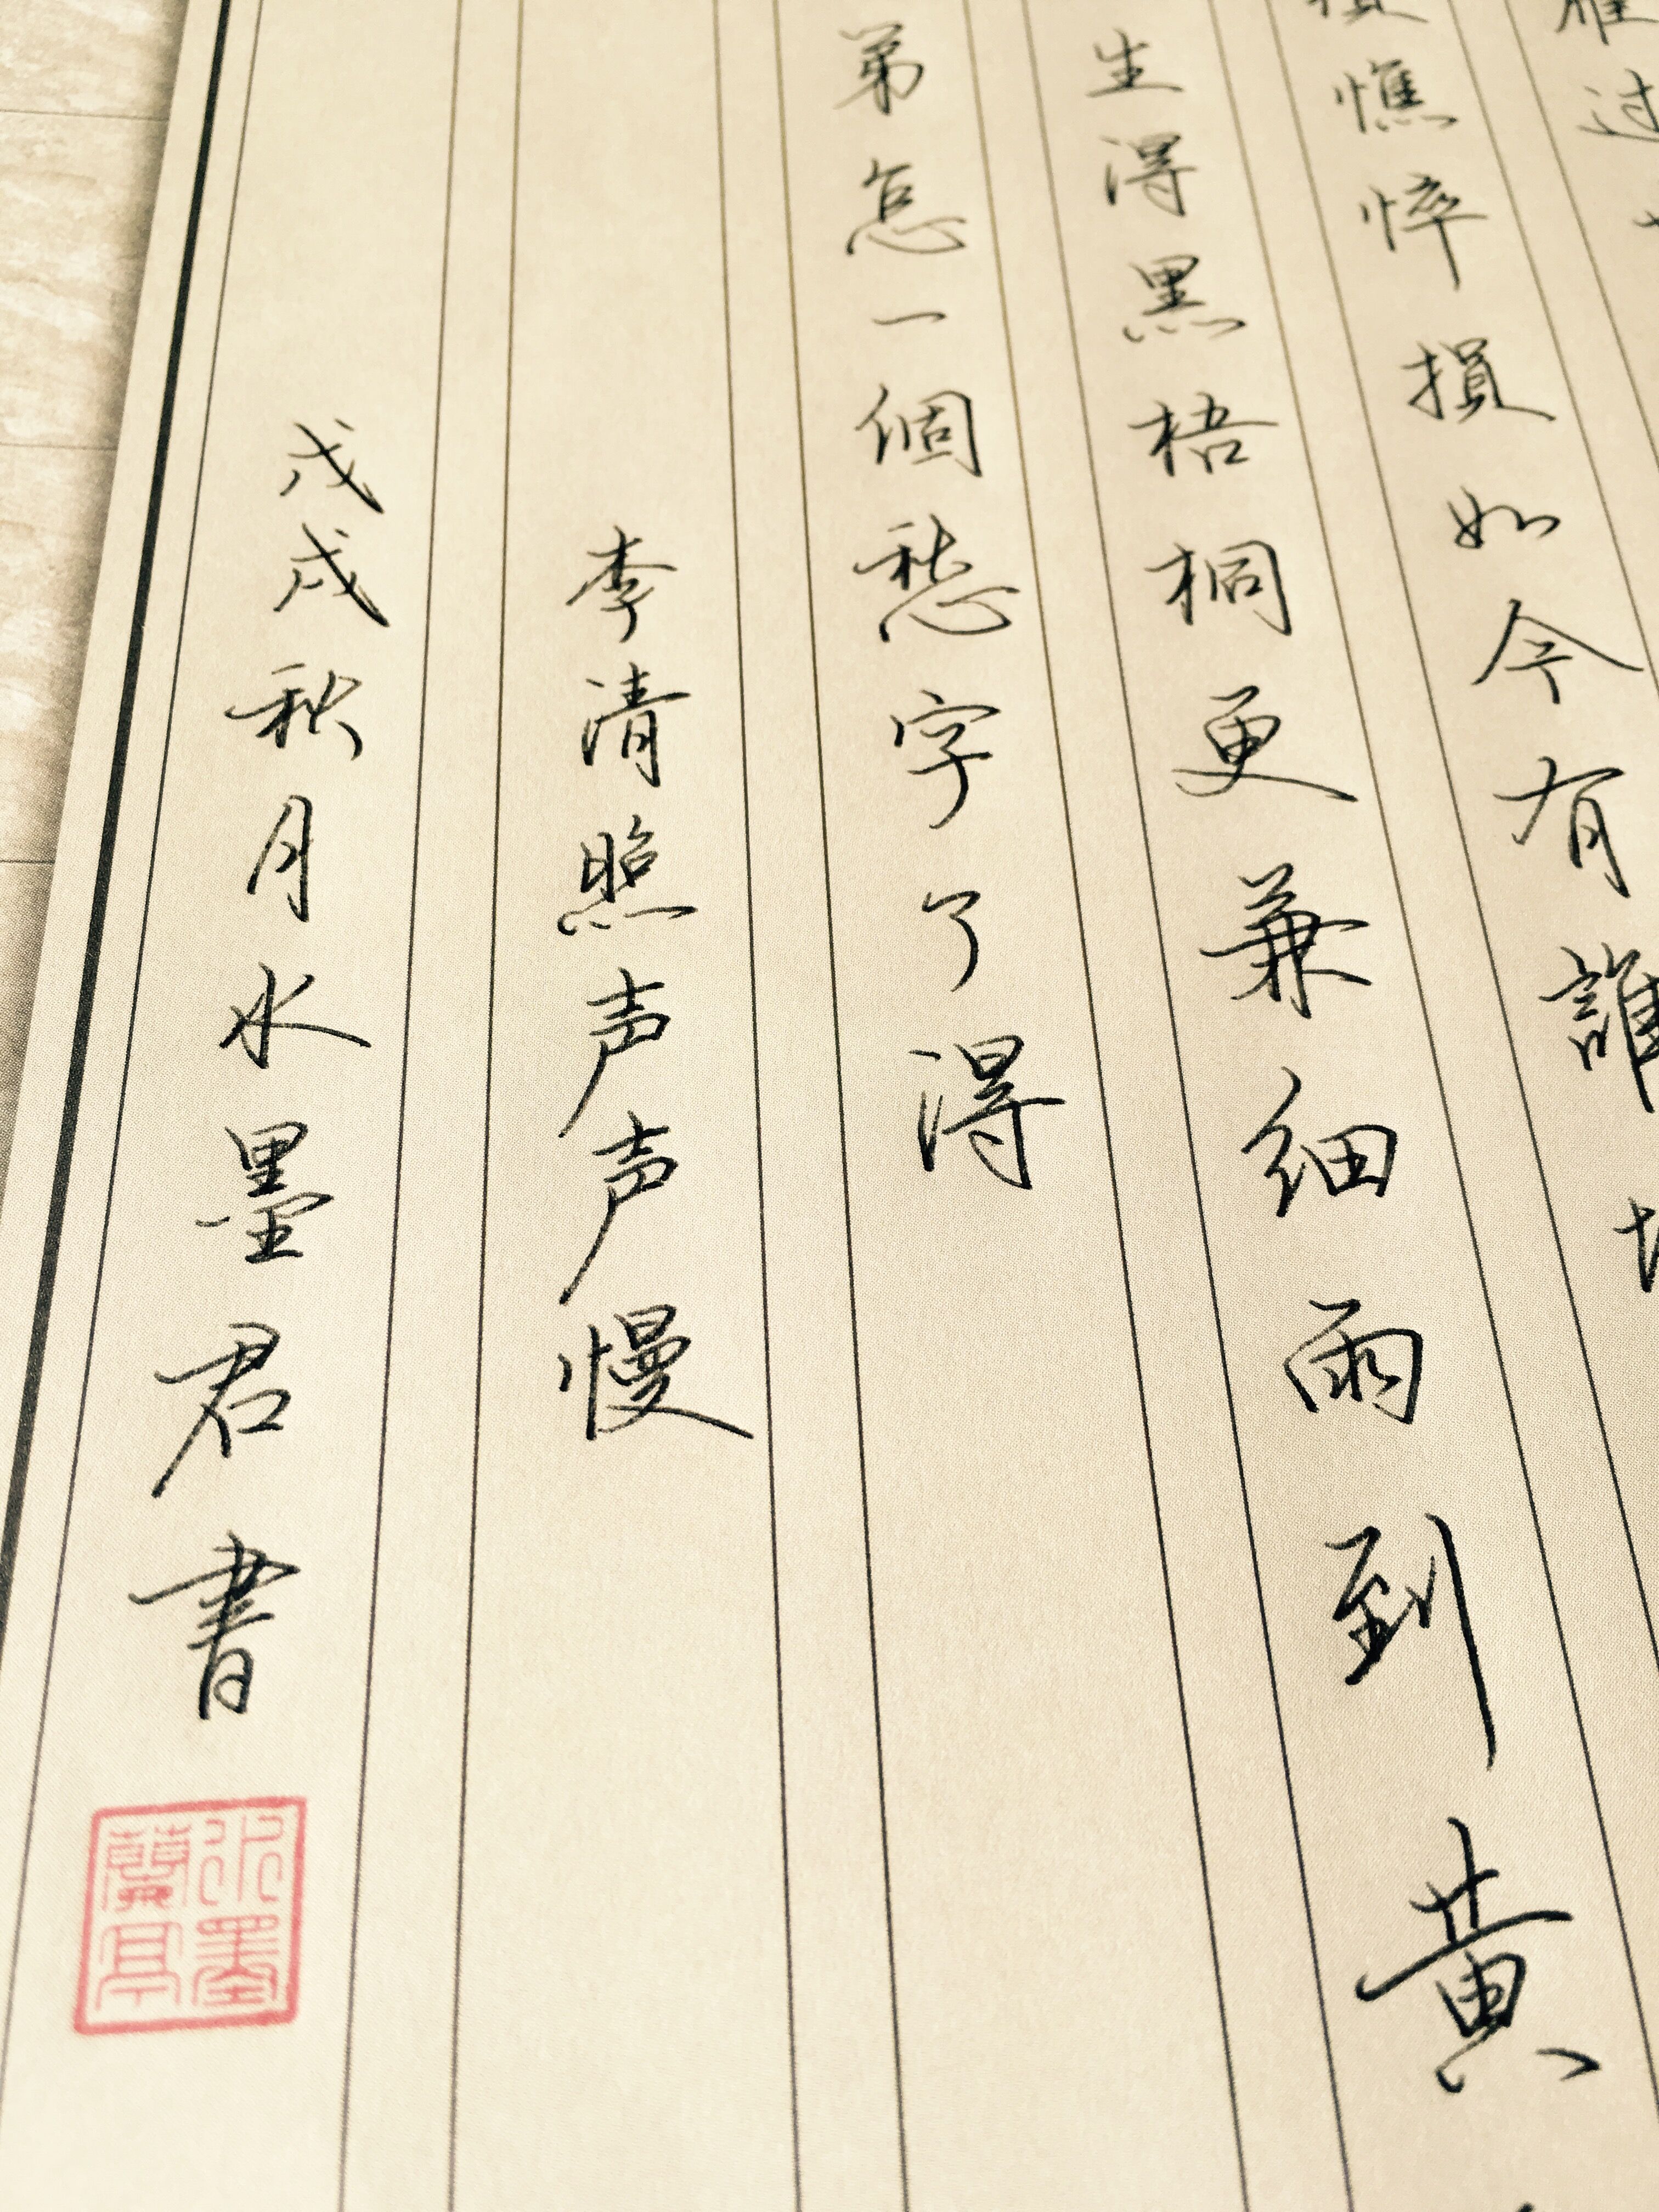 过
憔悴損如今有誰
生得黑梧桐更兼細雨到黃
第怎一個愁字了得
李清照声声慢
戊戌秋月水墨君書
水墨蘭亭